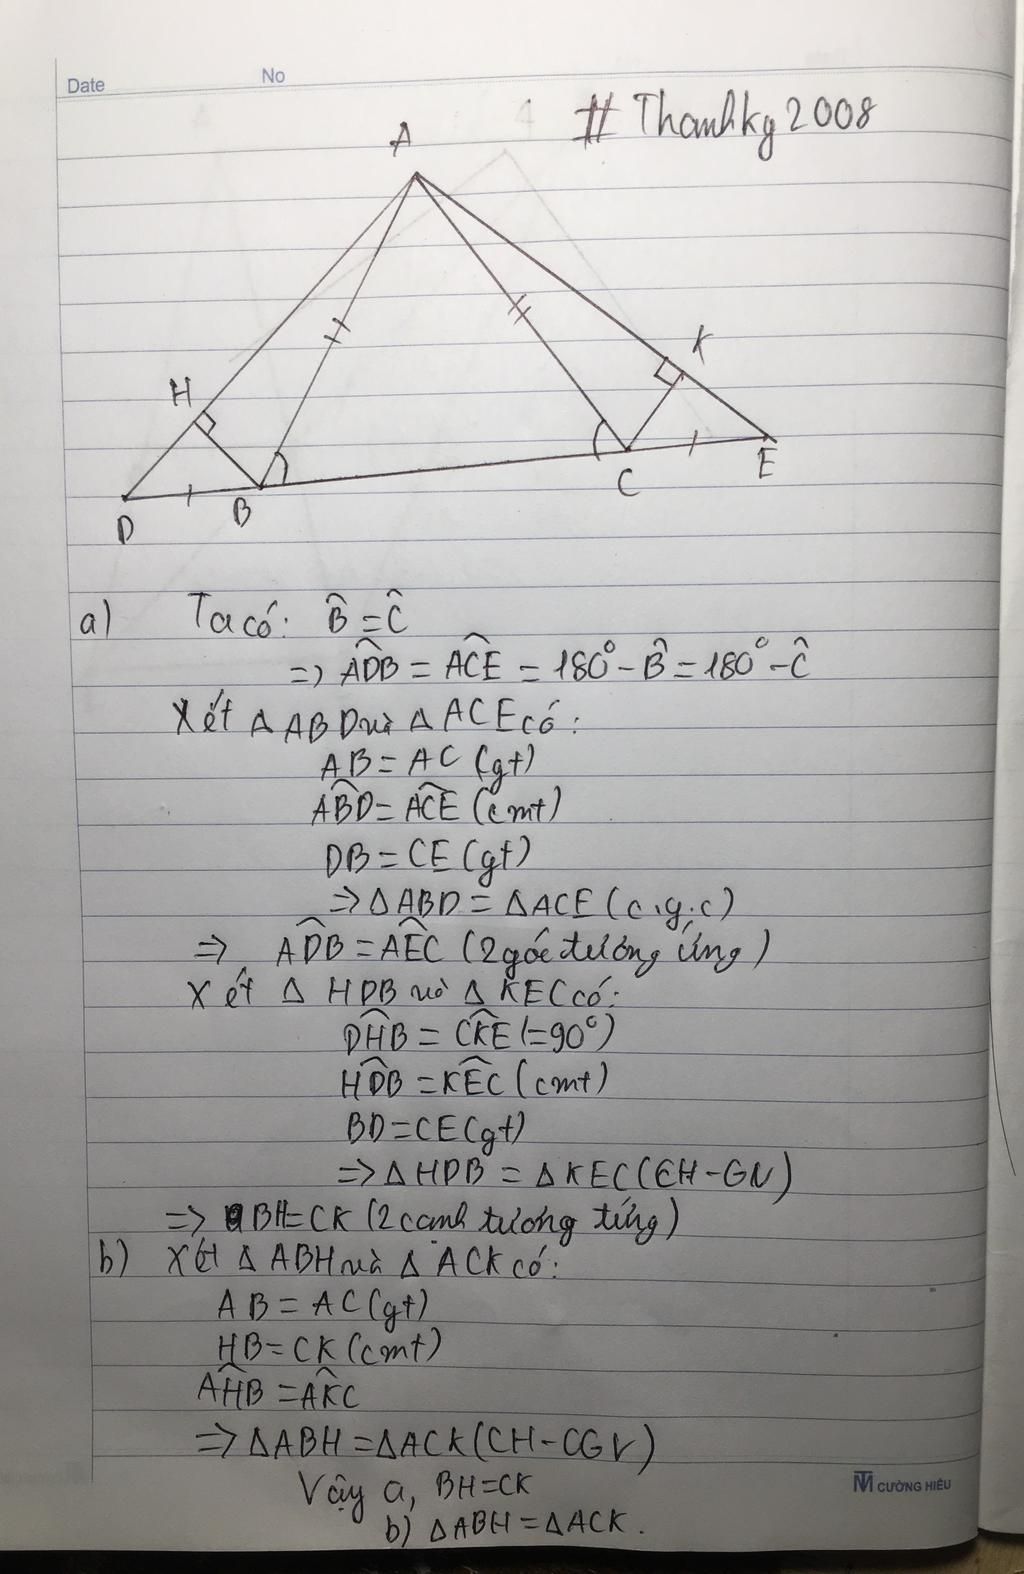 Date
No
# Thanhkg2008
A
H
K
D
B
C
E
a) Ta có: B̂ = Ĉ
=> ADB̂ = ACÊ = 180° - B̂ = 180° - Ĉ
Xét Δ ABD và Δ ACE có:
AB = AC (gt)
ABD̂ = ACÊ (cmt)
DB = CE (gt)
=> Δ ABD = Δ ACE (c.g.c)
=> ADB̂ = AEĈ (2 góc tương ứng)
Xét Δ HDB và Δ KEC có:
DHB̂ = CKÊ (=90°)
HDB̂ = KEĈ (cmt)
BD = CE (gt)
=> Δ HDB = Δ KEC (CH-GN)
=> BH = CK (2 cạnh tương ứng)
b) Xét Δ ABH và Δ ACK có:
AB = AC (gt)
HB = CK (cmt)
AHB̂ = AKĈ
=> Δ ABH = Δ ACK (CH-CGV)
Vậy a, BH = CK
b) Δ ABH = Δ ACK.
CƯỜNG HIẾU